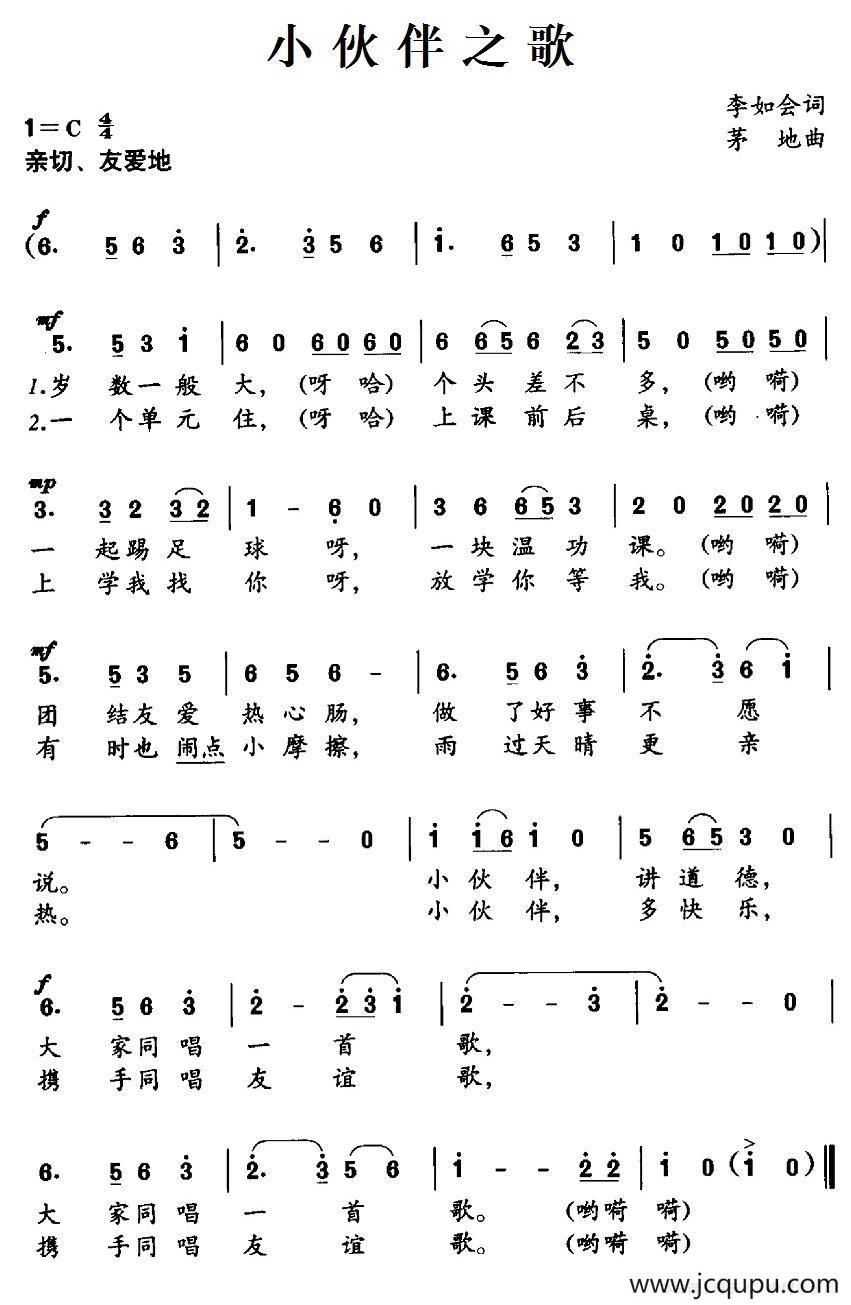 小伙伴之歌
李如会词
1=C 4/4
茅 地曲
亲切、友爱地
f
(6. 5 6 3 | 2. 3 5 6 | i. 6 5 3 | 1 0 1 0 1 0)|
mf
5. 5 3 i | 6 0 6 0 6 0 | 6 6 5 6 2 3 | 5 0 5 0 5 0 |
1.岁 数一般 大,(呀 哈) 个头差不 多,(哟 嗬)
2.一 个单元 住,(呀 哈) 上课前后 桌,(哟 嗬)
mp
3. 3 2 3 2 | 1 - 6 0 | 3 6 6 5 3 | 2 0 2 0 2 0 |
一 起踢足 球 呀, 一块温功 课。(哟 嗬)
上 学我找 你 呀, 放学你等 我。(哟 嗬)
mf
5. 5 3 5 | 6 5 6 - | 6. 5 6 3 | 2. 3 6 i |
团 结友爱 热心肠, 做 了好事 不 愿
有 时也闹点小摩擦, 雨 过天晴 更 亲
5 - - 6 | 5 - - 0 | i i 6 i 0 | 5 6 5 3 0 |
说。 小 伙 伴, 讲 道 德,
热。 小 伙 伴, 多 快 乐,
f
6. 5 6 3 | 2 - 2 3 i | 2 - - 3 | 2 - - 0 |
大 家同唱 一 首 歌,
携 手同唱 友 谊 歌,
6. 5 6 3 | 2. 3 5 6 | i - - 2 2 | i 0 (i 0)‖
大 家同唱 一 首 歌。 (哟嗬 嗬)
携 手同唱 友 谊 歌。 (哟嗬 嗬)
www.jcqupu.com